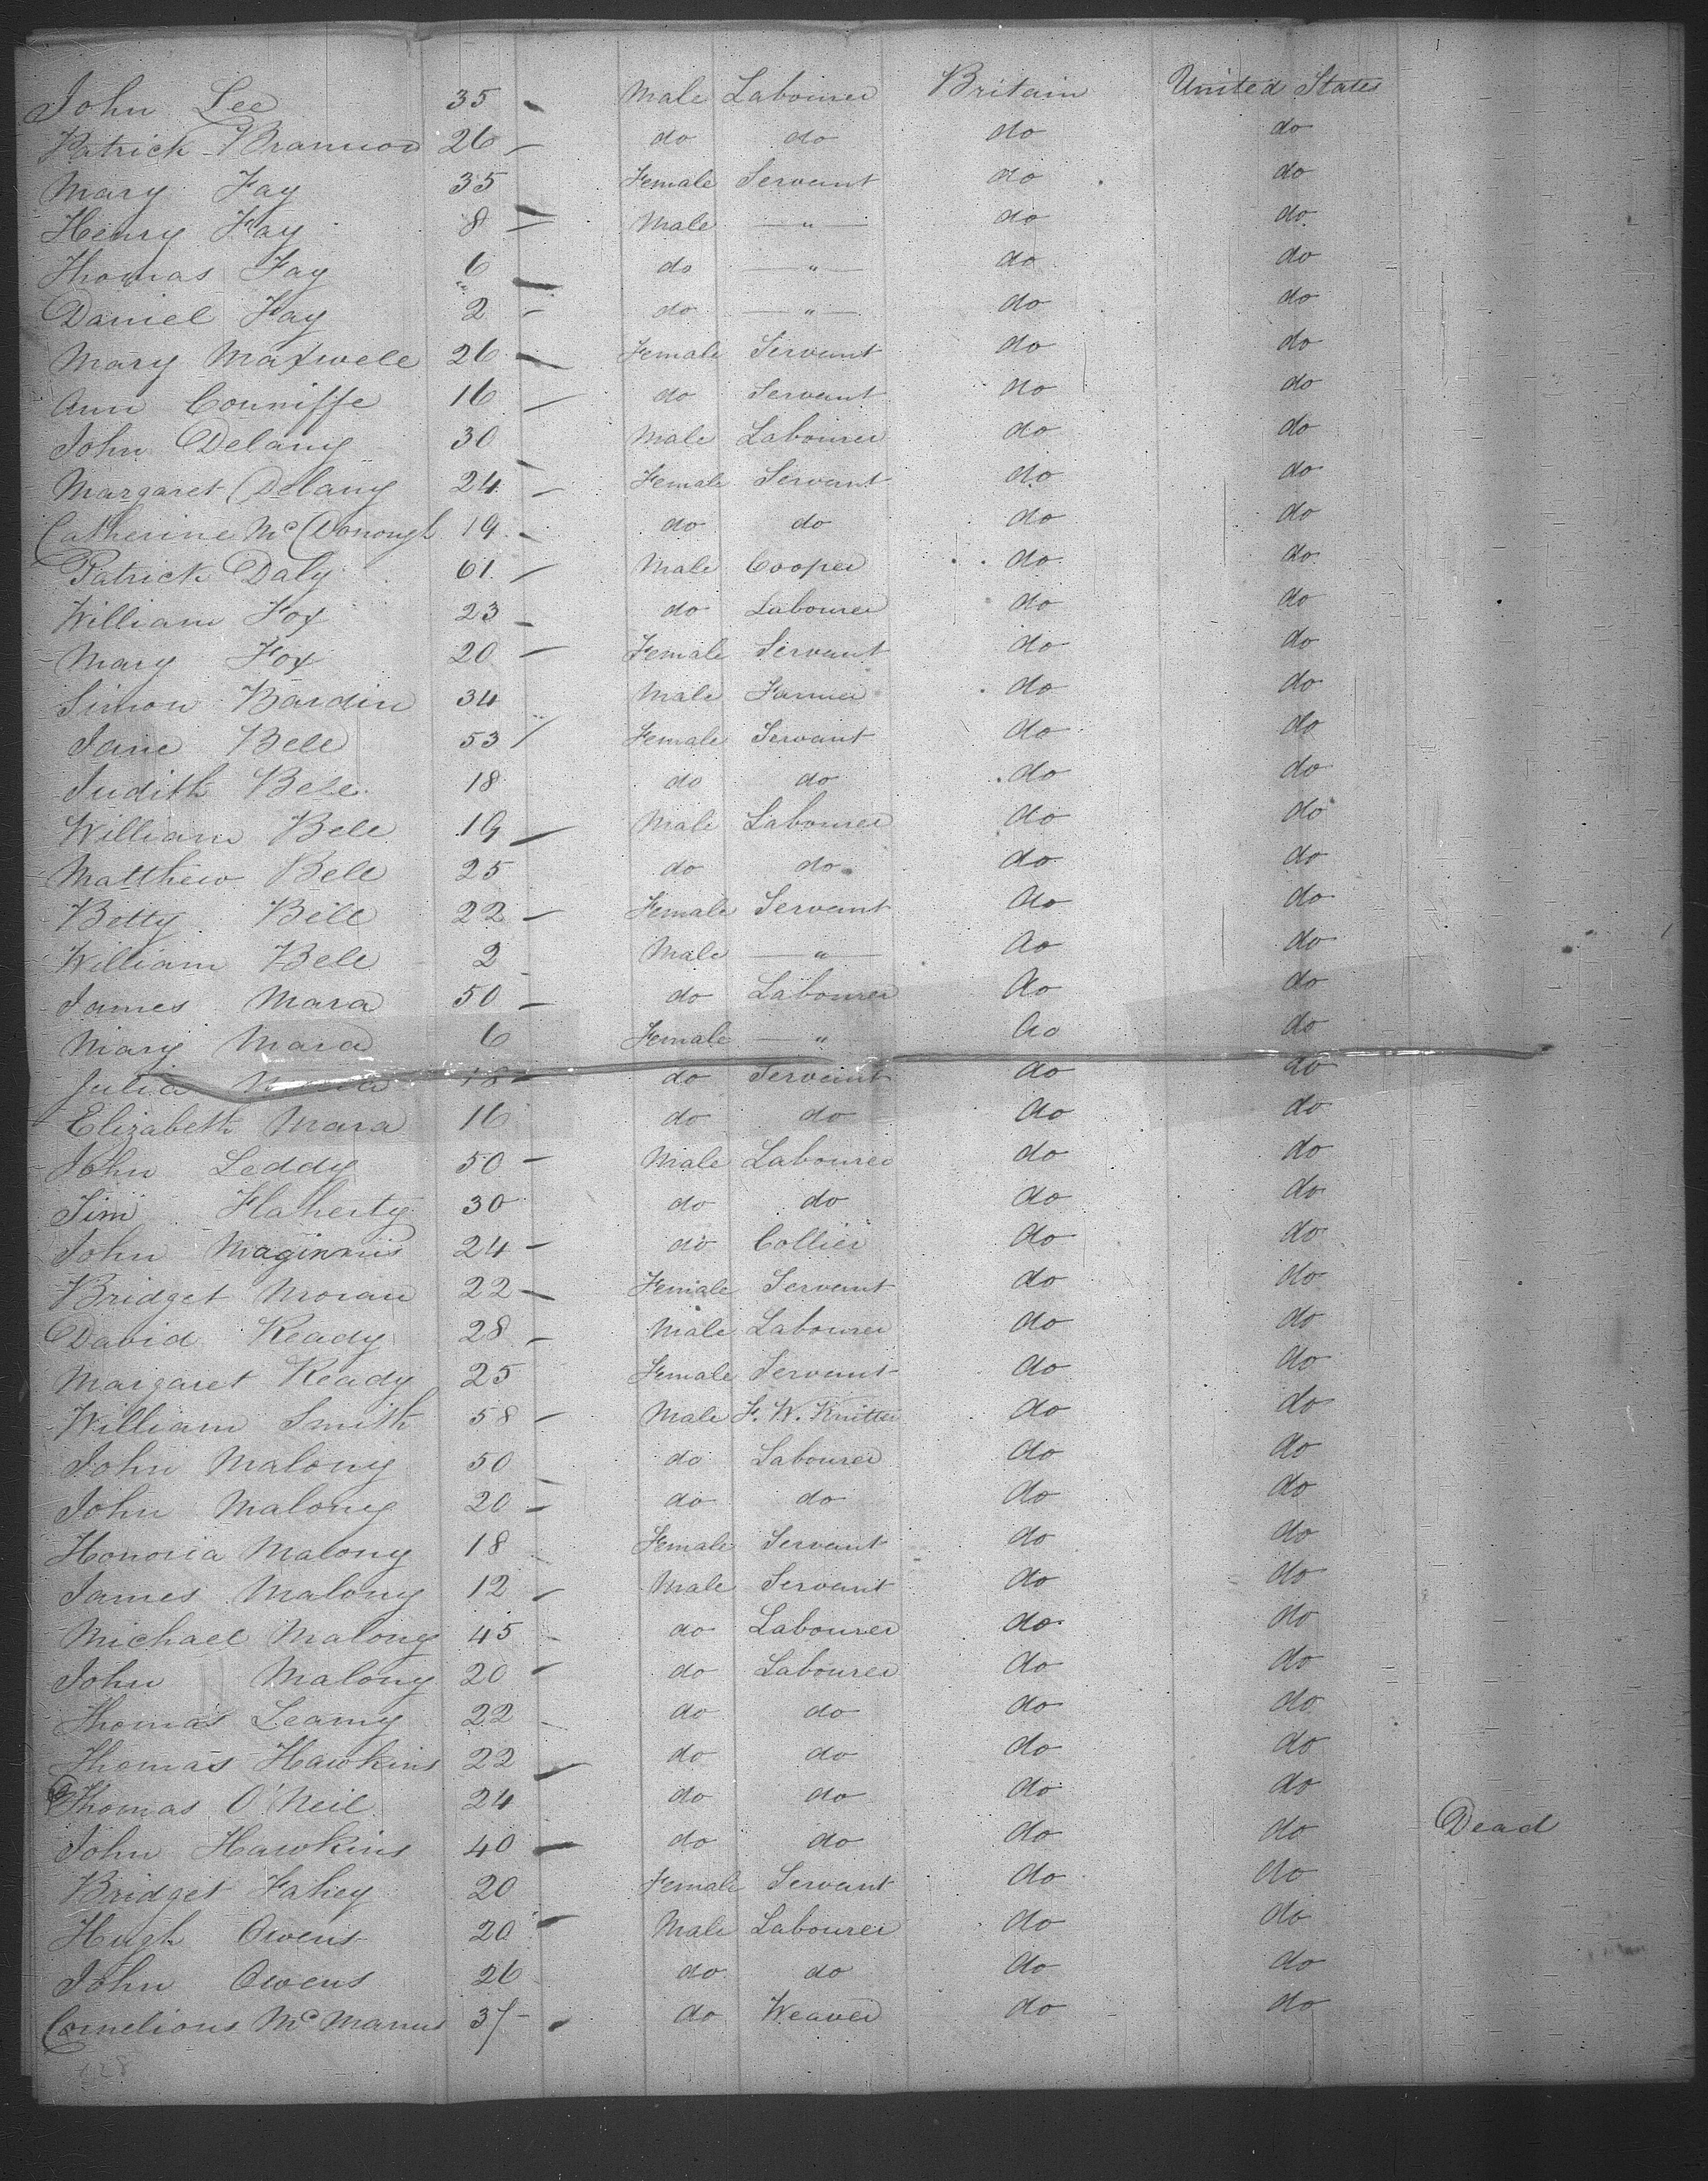 John Lee 35 Male Labourer Britain United States
Patrick Brannon 26 do do do do
Mary Fay 35 Female Servant do do
Henry Fay 8 Male — " — do do
Thomas Fay 6 do — " — do do
Daniel Fay 2 do — " — do do
Mary Maxwell 26 Female Servant do do
Ann Counniffe 16 do Servant do do
John Delany 30 Male Labourer do do
Margaret Delany 24 Female Servant do do
Catherine McDonough 19 do do do do
Patrick Daly 61 Male Cooper do do
William Fox 23 do Labourer do do
Mary Fox 20 Female Servant do do
Simon Bardin 34 Male Farmer do do
Jane Bell 53 Female Servant do do
Judith Bell 18 do do do do
William Bell 19 Male Labourer do do
Matthew Bell 25 do do do do
Betty Bell 22 Female Servant do do
William Bell 2 Male — " — do do
James Mara 50 do Labourer do do
Mary Mara 6 Female — " do do
Julia Mara 18 do Servant do do
Elizabeth Mara 16 do do do do
John Leddy 50 Male Labourer do do
Jim Flaherty 30 do do do do
John Maginnis 24 do Collier do do
Bridget Moran 22 Female Servant do do
David Keady 28 Male Labourer do do
Margaret Keady 25 Female Servant do do
William Smith 58 Male F. W. Knitter do do
John Malony 50 do Labourer do do
John Malony 20 do do do do
Honoria Malony 18 Female Servant do do
James Malony 12 Male Servant do do
Michael Malony 45 do Labourer do do
John Malony 20 do Labourer do do
Thomas Leamy 22 do do do do
Thomas Hawkins 22 do do do do
Thomas O'Neil 24 do do do do
John Hawkins 40 do do do do Dead
Bridget Fahey 20 Female Servant do do
Hugh Owens 20 Male Labourer do do
John Owens 26 do do do do
Cornelious McManus 37 do Weaver do do
128